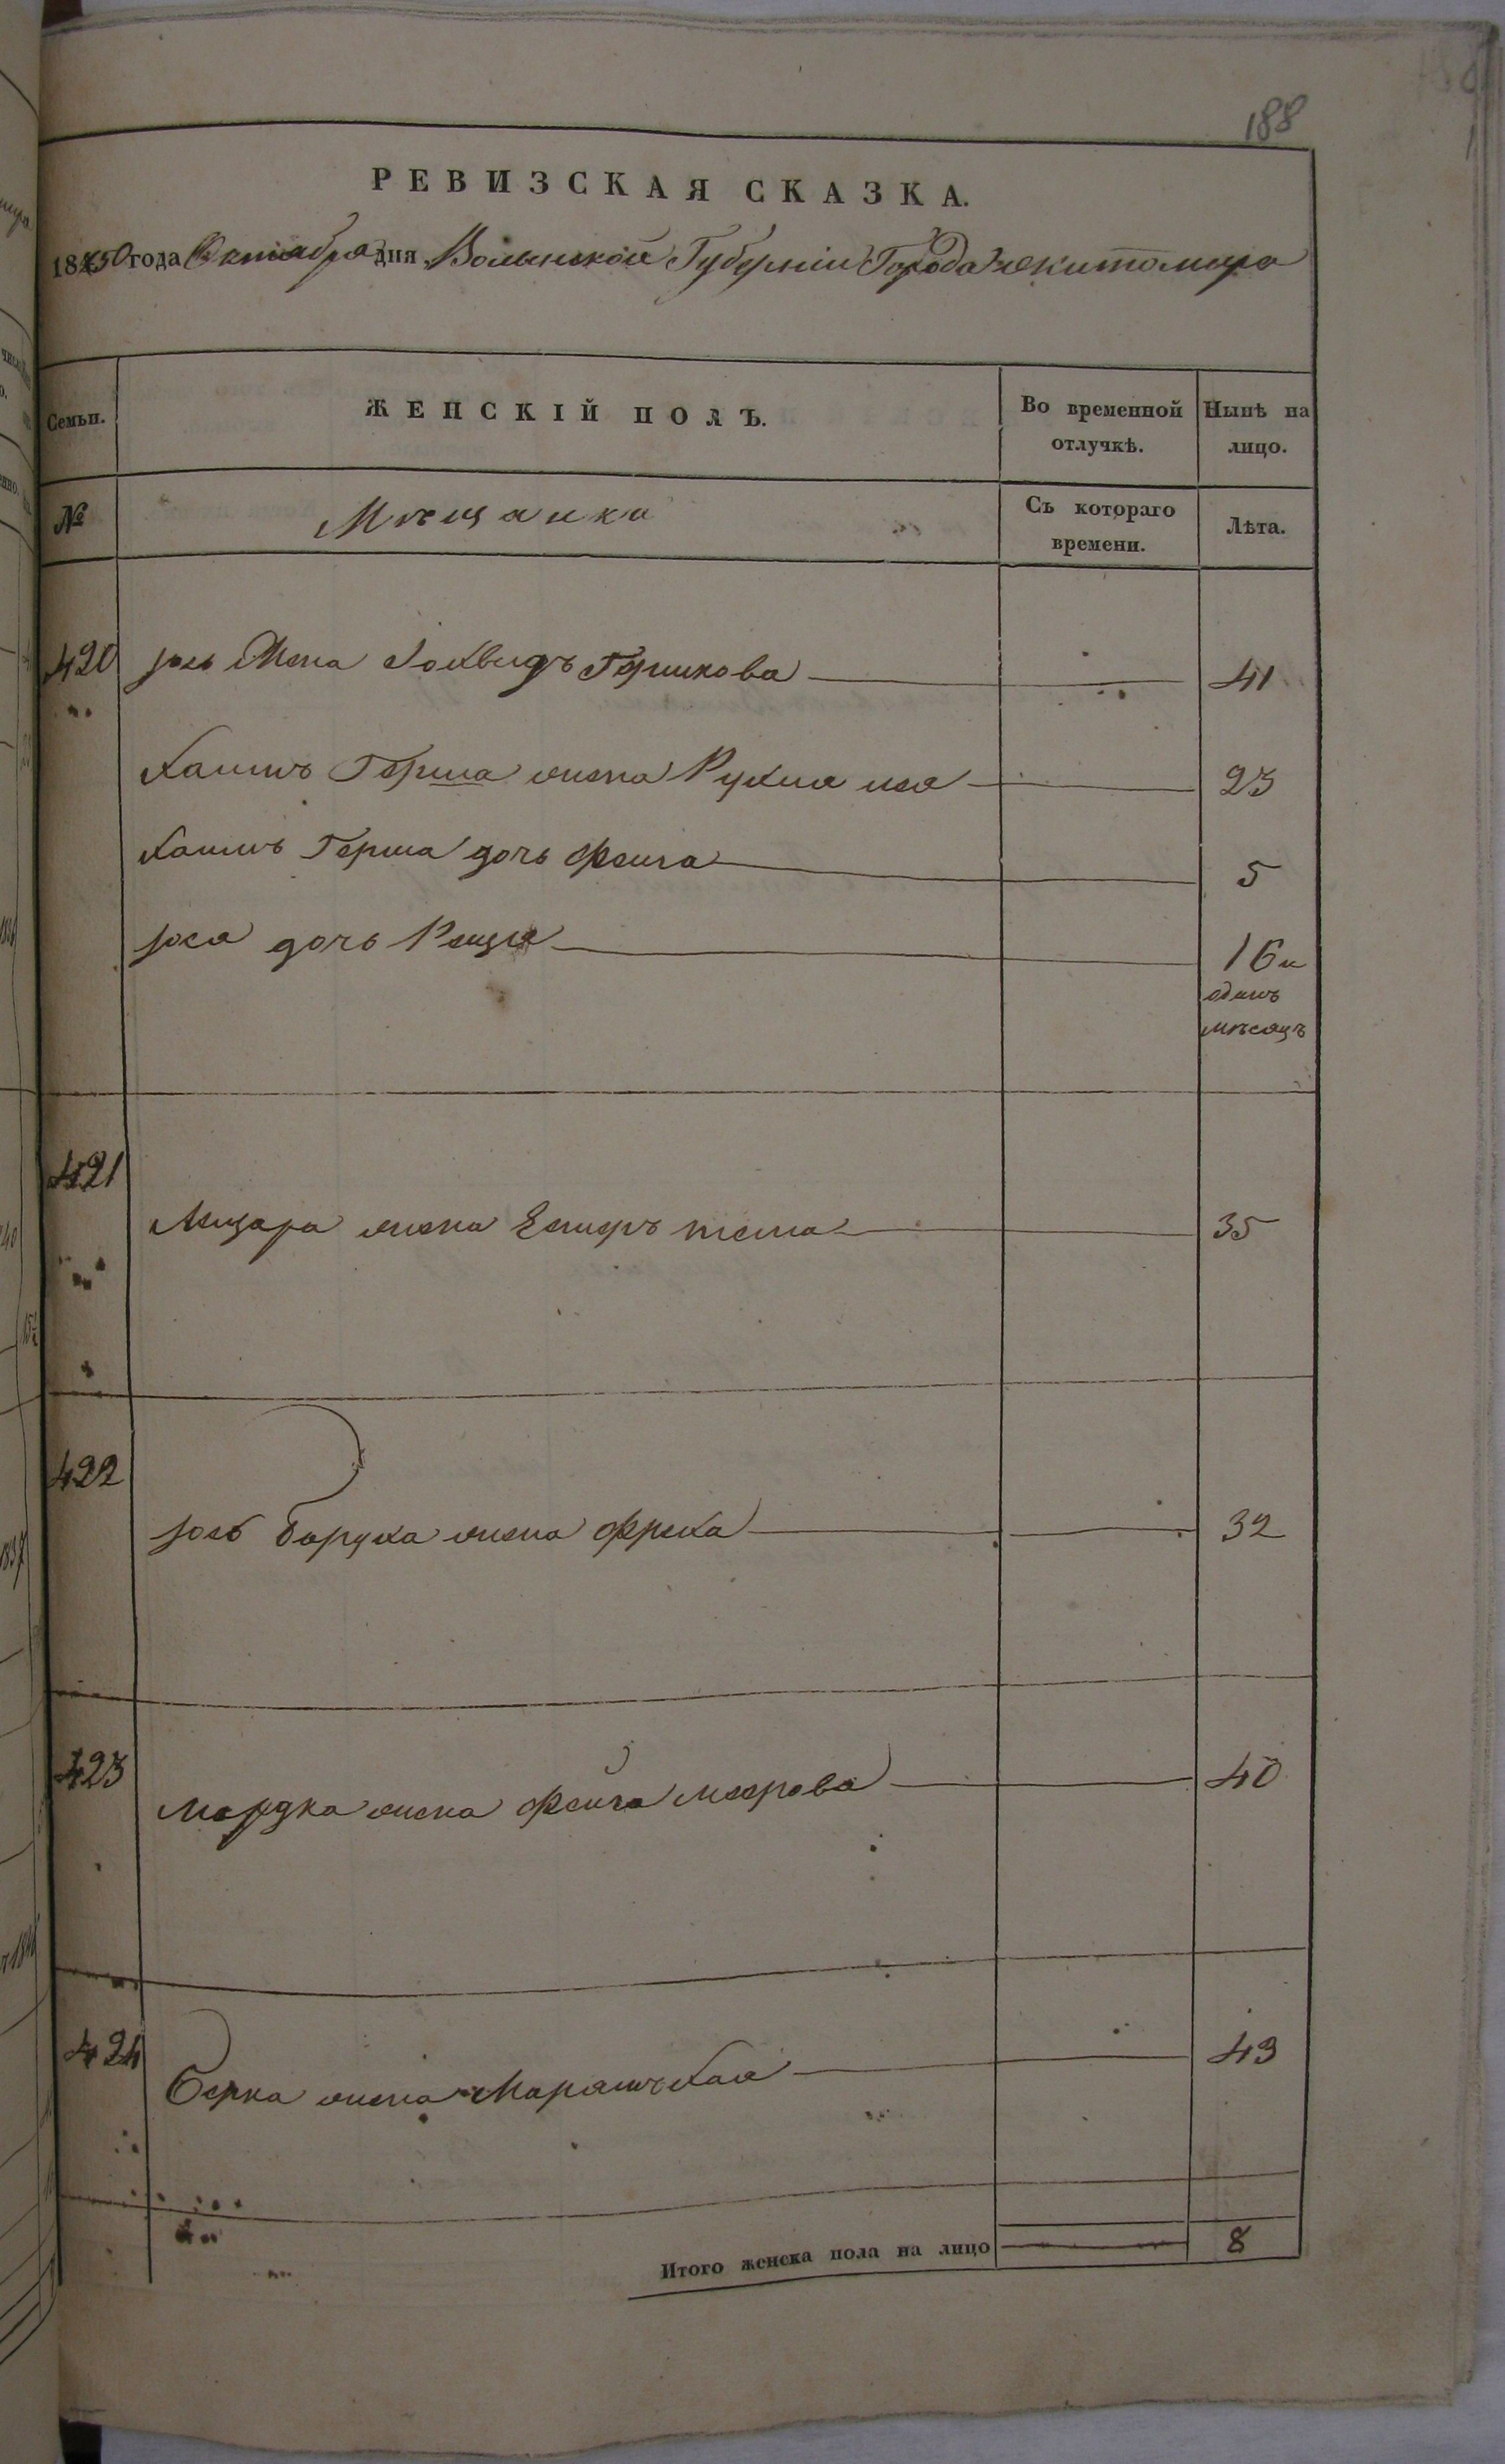 188
РЕВИЗСКАЯ СКАЗКА.
1850 года Октября дня Волынской Губерніи Города Житомира
Семьи.
ЖЕНСКІЙ ПОЛЪ.
Во временной отлучкѣ.
Нынѣ на лицо.
№
Мѣщанки
Съ котораго времени.
Лѣта.
420
Гершкова
41
Герша жена Рухля
23
Герша дочь Фейга
5
дочь Рейзя
16 и
одинъ
мѣсяцъ
421
Лейзора жена
35
422
Боруха жена
32
423
Мордка жена Фейга Меерова
40
424
Берка жена
43
Итого женска пола на лицо
8